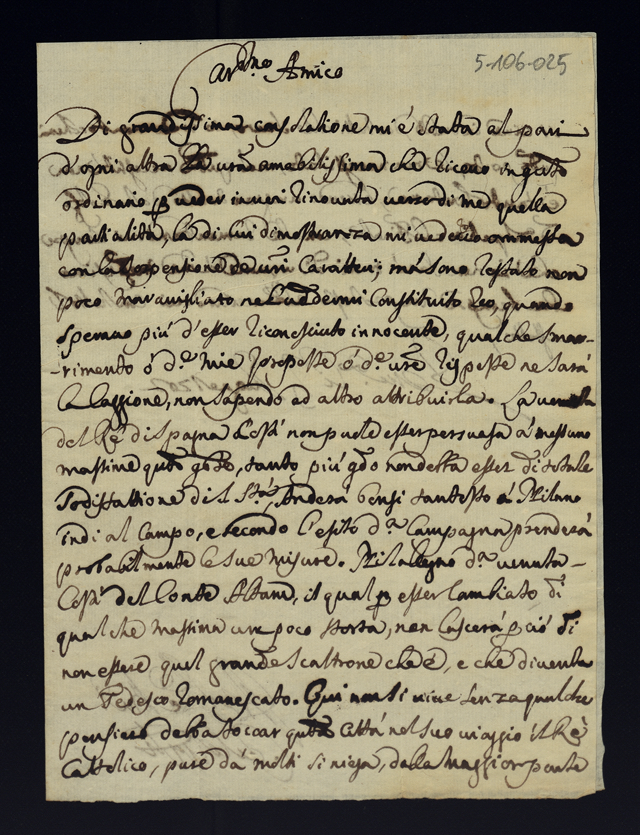 5-106-025
Car.mo Amico
Di grandissima consolatione mi è stata al pari
d'ogni altra la vr̃a amabilissima che ricevo in q.to
ordinario p veder in voi rinovata verso di me quella
parialità, la di cui dimostranza mi vedevo ommessa
con la sospensione de vr̃i Caratteri; mà sono restato non
poco maravigliato nel vedermi Constituito Reo, quando
speravo più d'esser riconosciuto innocente, qualche smar-
-rimento ò d.e mie proposte ò d.e vr̃e risposte ne sarà
la Caggione, non sapendo ad altro attribuirla. La venuta
del Rè di Spagna Costì non puole esser persuasa à nessuno
massime q.to gov.o, tanto più q.do non debba esser di totale
sodisfattione di S. S.tà, Anderà bensì tantosto à Milano
indi al Campo, e secondo l'esito d.a Campagna prenderà
probabilmente le sue misure. Mi ralegro d.a venuta
Costì del Conte Albani, il qual p esser Cambiato di
qualche massima un poco storta, non lascerà p ciò di
non essere quel grande scaltrone che è, e che diventa
un Tedesco Romanescato. Qui non si vive senza qualche
pensiero debba toccar q.ta Città nel suo viaggio il Rè
Cattolico, pure dà molti si niega, dalla maggior parte